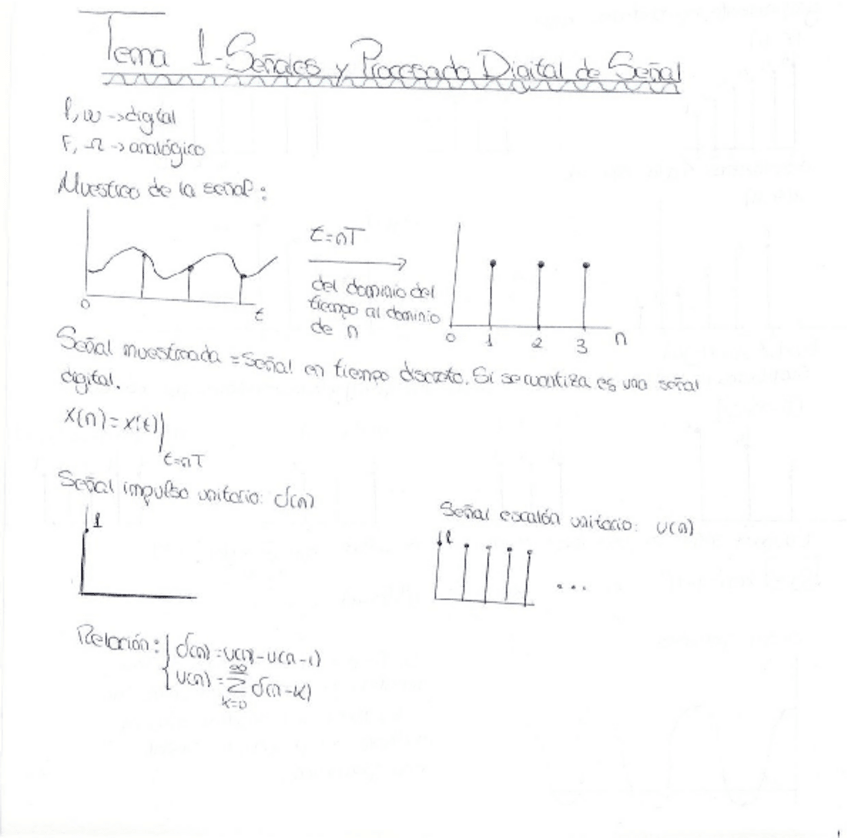 Tema 1-Señales y Procesado Digital de Señal
f, ω → digital
F, Ω → analógico
Muestreo de la señal:
t=nT
del dominio del
tiempo al dominio
de n
0 t
0 1 2 3 n
Señal muestreada = Señal en tiempo discreto. Si se cuantiza es una señal
digital.
x(n) = x(t)|
t=nT
Señal impulso unitario: δ(n)
1
Señal escalón unitario: u(n)
1
...
Relación: { δ(n) = u(n) - u(n-1)
u(n) = ∞Σk=0 δ(n-k)